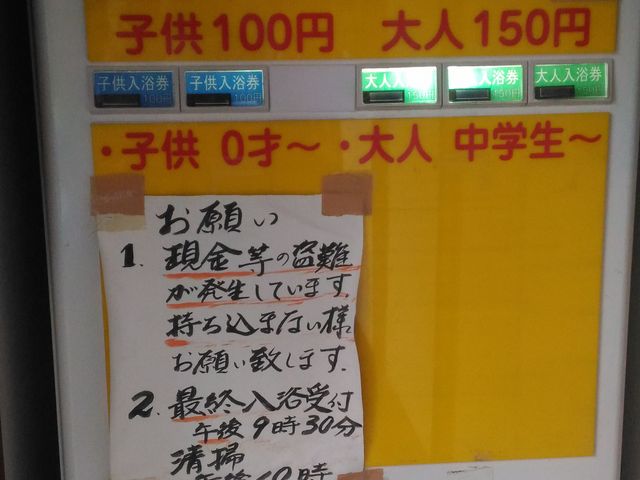 子供100円 大人150円
子供入浴券 100円 子供入浴券 100円 大人入 150円 入浴券 150円 大人入浴券 150円
・子供 0才〜 ・大人 中学生〜
お願い
1. 現金等の盗難
が発生しています.
持ち込まない様
お願い致します.
2. 最終入浴受付
午後9時30分
清掃
午後10時